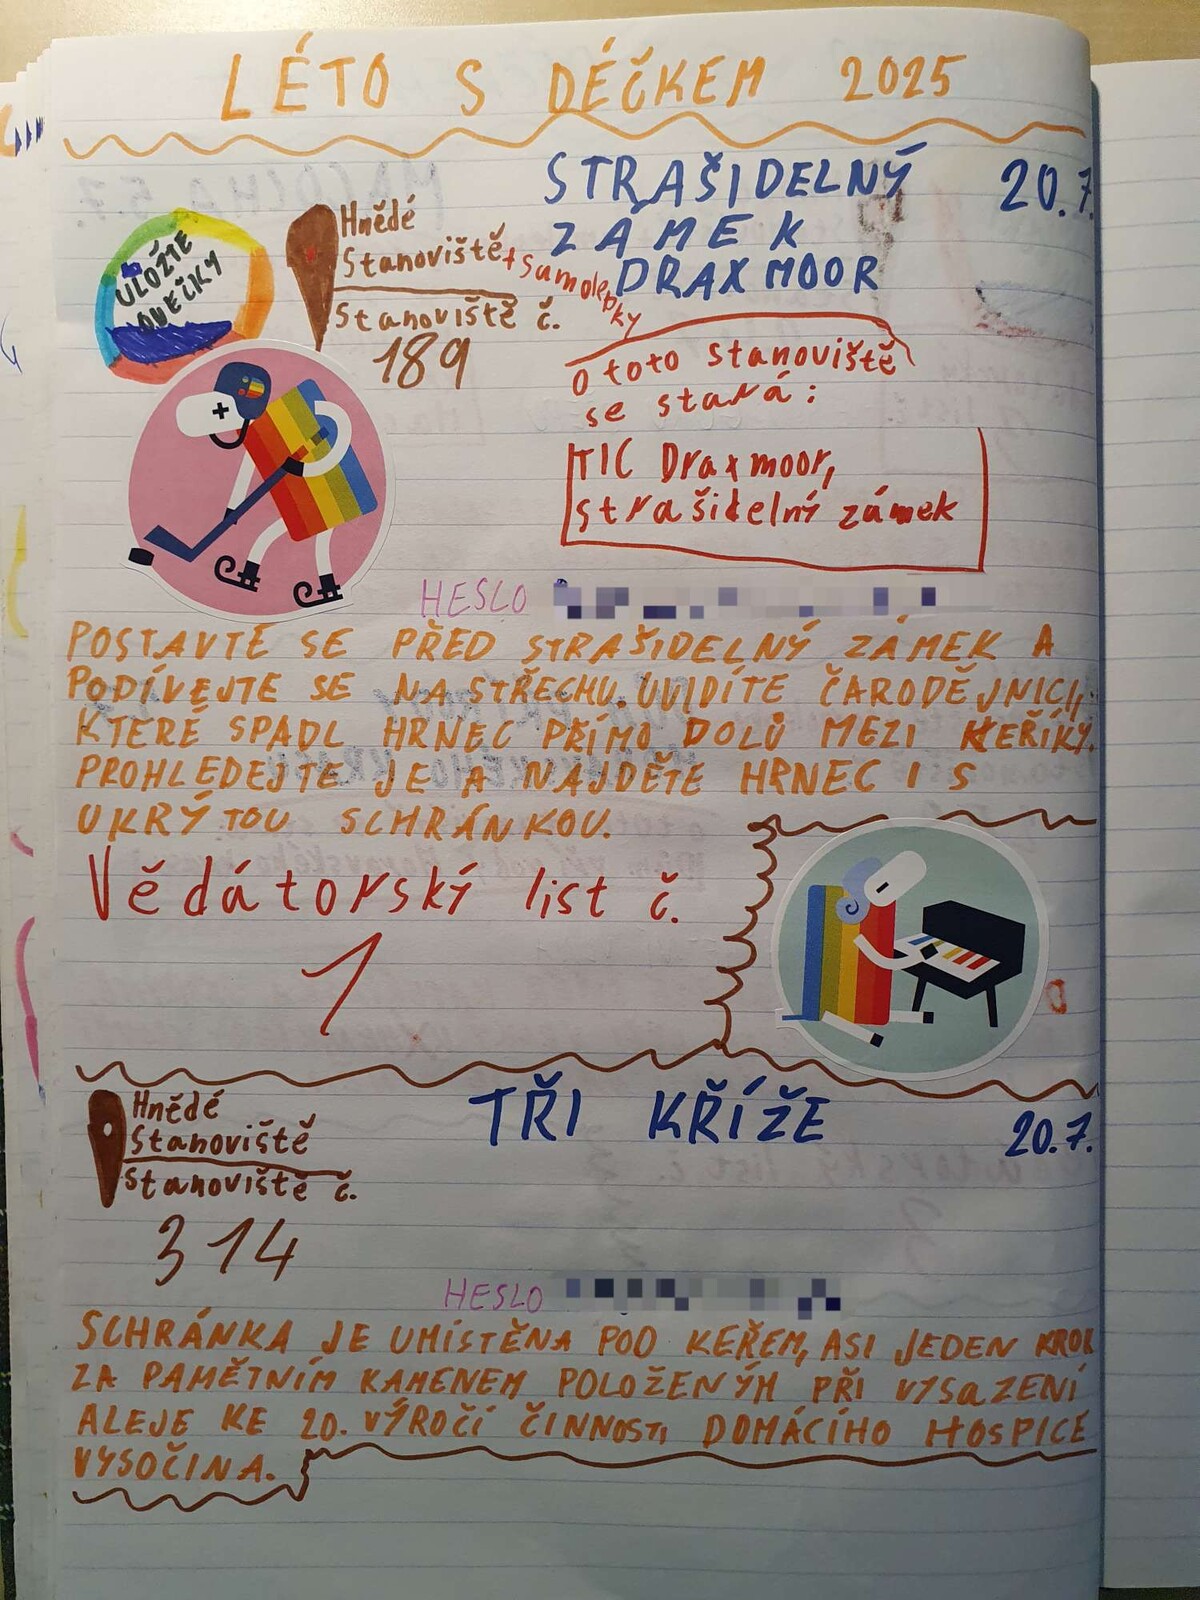 LÉTO S DÉČKEM 2025
STRAŠIDELNÝ
ZÁMEK
DRAXMOOR
20.7.
ULOŽTE
OVEČKY
Hnědé
Stanoviště
+ samolepky
Stanoviště č.
189
O toto stanoviště
se stará:
TIC Draxmoor,
strašidelný zámek
HESLO
POSTAVTE SE PŘED STRAŠIDELNÝ ZÁMEK A
PODÍVEJTE SE NA STŘECHU. UVIDÍTE ČARODĚJNICI,
KTERÉ SPADL HRNEC PŘÍMO DOLŮ MEZI KEŘÍKY.
PROHLEDEJTE JE A NAJDĚTE HRNEC I S
UKRÝTOU SCHRÁNKOU.
Vědátorský list č.
1
Hnědé
Stanoviště
Stanoviště č.
314
TŘI KŘÍŽE
20.7.
HESLO
SCHRÁNKA JE UMÍSTĚNA POD KEŘEM, ASI JEDEN KROK
ZA PAMĚTNÍM KAMENEM POLOŽENÝM PŘI VYSAZENÍ
ALEJE KE 20. VÝROČÍ ČINNOSTI DOMÁCÍHO HOSPICE
VYSOČINA.